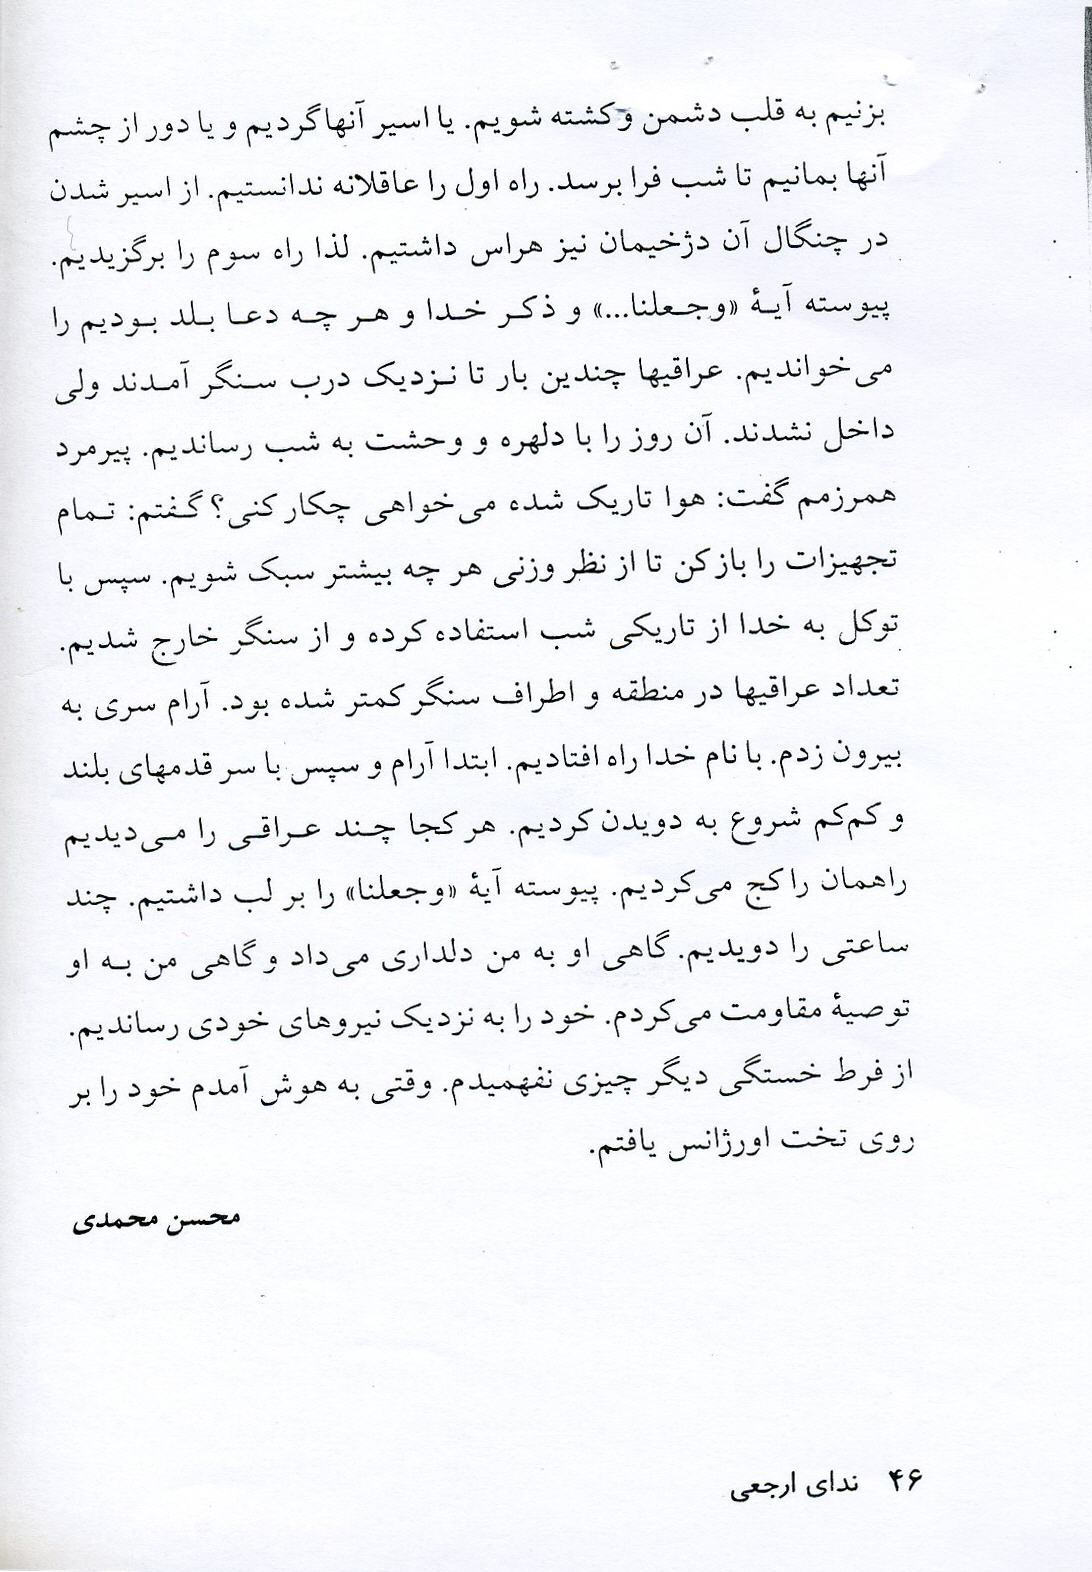 بزنیم به قلب دشمن و کشته شویم. یا اسیر آنها گردیم و یا دور از چشم
آنها بمانیم تا شب فرا برسد. راه اول را عاقلانه ندانستیم. از اسیر شدن
در چنگال آن دژخیمان نیز هراس داشتیم. لذا راه سوم را برگزیدیم.
پیوسته آیهٔ «وجعلنا...» و ذکر خدا و هر چه دعا بلد بودیم را
می‌خواندیم. عراقیها چندین بار تا نزدیک درب سنگر آمدند ولی
داخل نشدند. آن روز را با دلهره و وحشت به شب رساندیم. پیرمرد
همرزمم گفت: هوا تاریک شده می‌خواهی چکار کنی؟ گفتم: تمام
تجهیزات را باز کن تا از نظر وزنی هر چه بیشتر سبک شویم. سپس با
توکل به خدا از تاریکی شب استفاده کرده و از سنگر خارج شدیم.
تعداد عراقیها در منطقه و اطراف سنگر کمتر شده بود. آرام سری به
بیرون زدم. با نام خدا راه افتادیم. ابتدا آرام و سپس با سر قدمهای بلند
و کم‌کم شروع به دویدن کردیم. هر کجا چند عراقی را می‌دیدیم
راهمان را کج می‌کردیم. پیوسته آیهٔ «وجعلنا» را بر لب داشتیم. چند
ساعتی را دویدیم. گاهی او به من دلداری می‌داد و گاهی من به او
توصیهٔ مقاومت می‌کردم. خود را به نزدیک نیروهای خودی رساندیم.
از فرط خستگی دیگر چیزی نفهمیدم. وقتی به هوش آمدم خود را بر
روی تخت اورژانس یافتم.
محسن محمدی
۴۶ ندای ارجعی